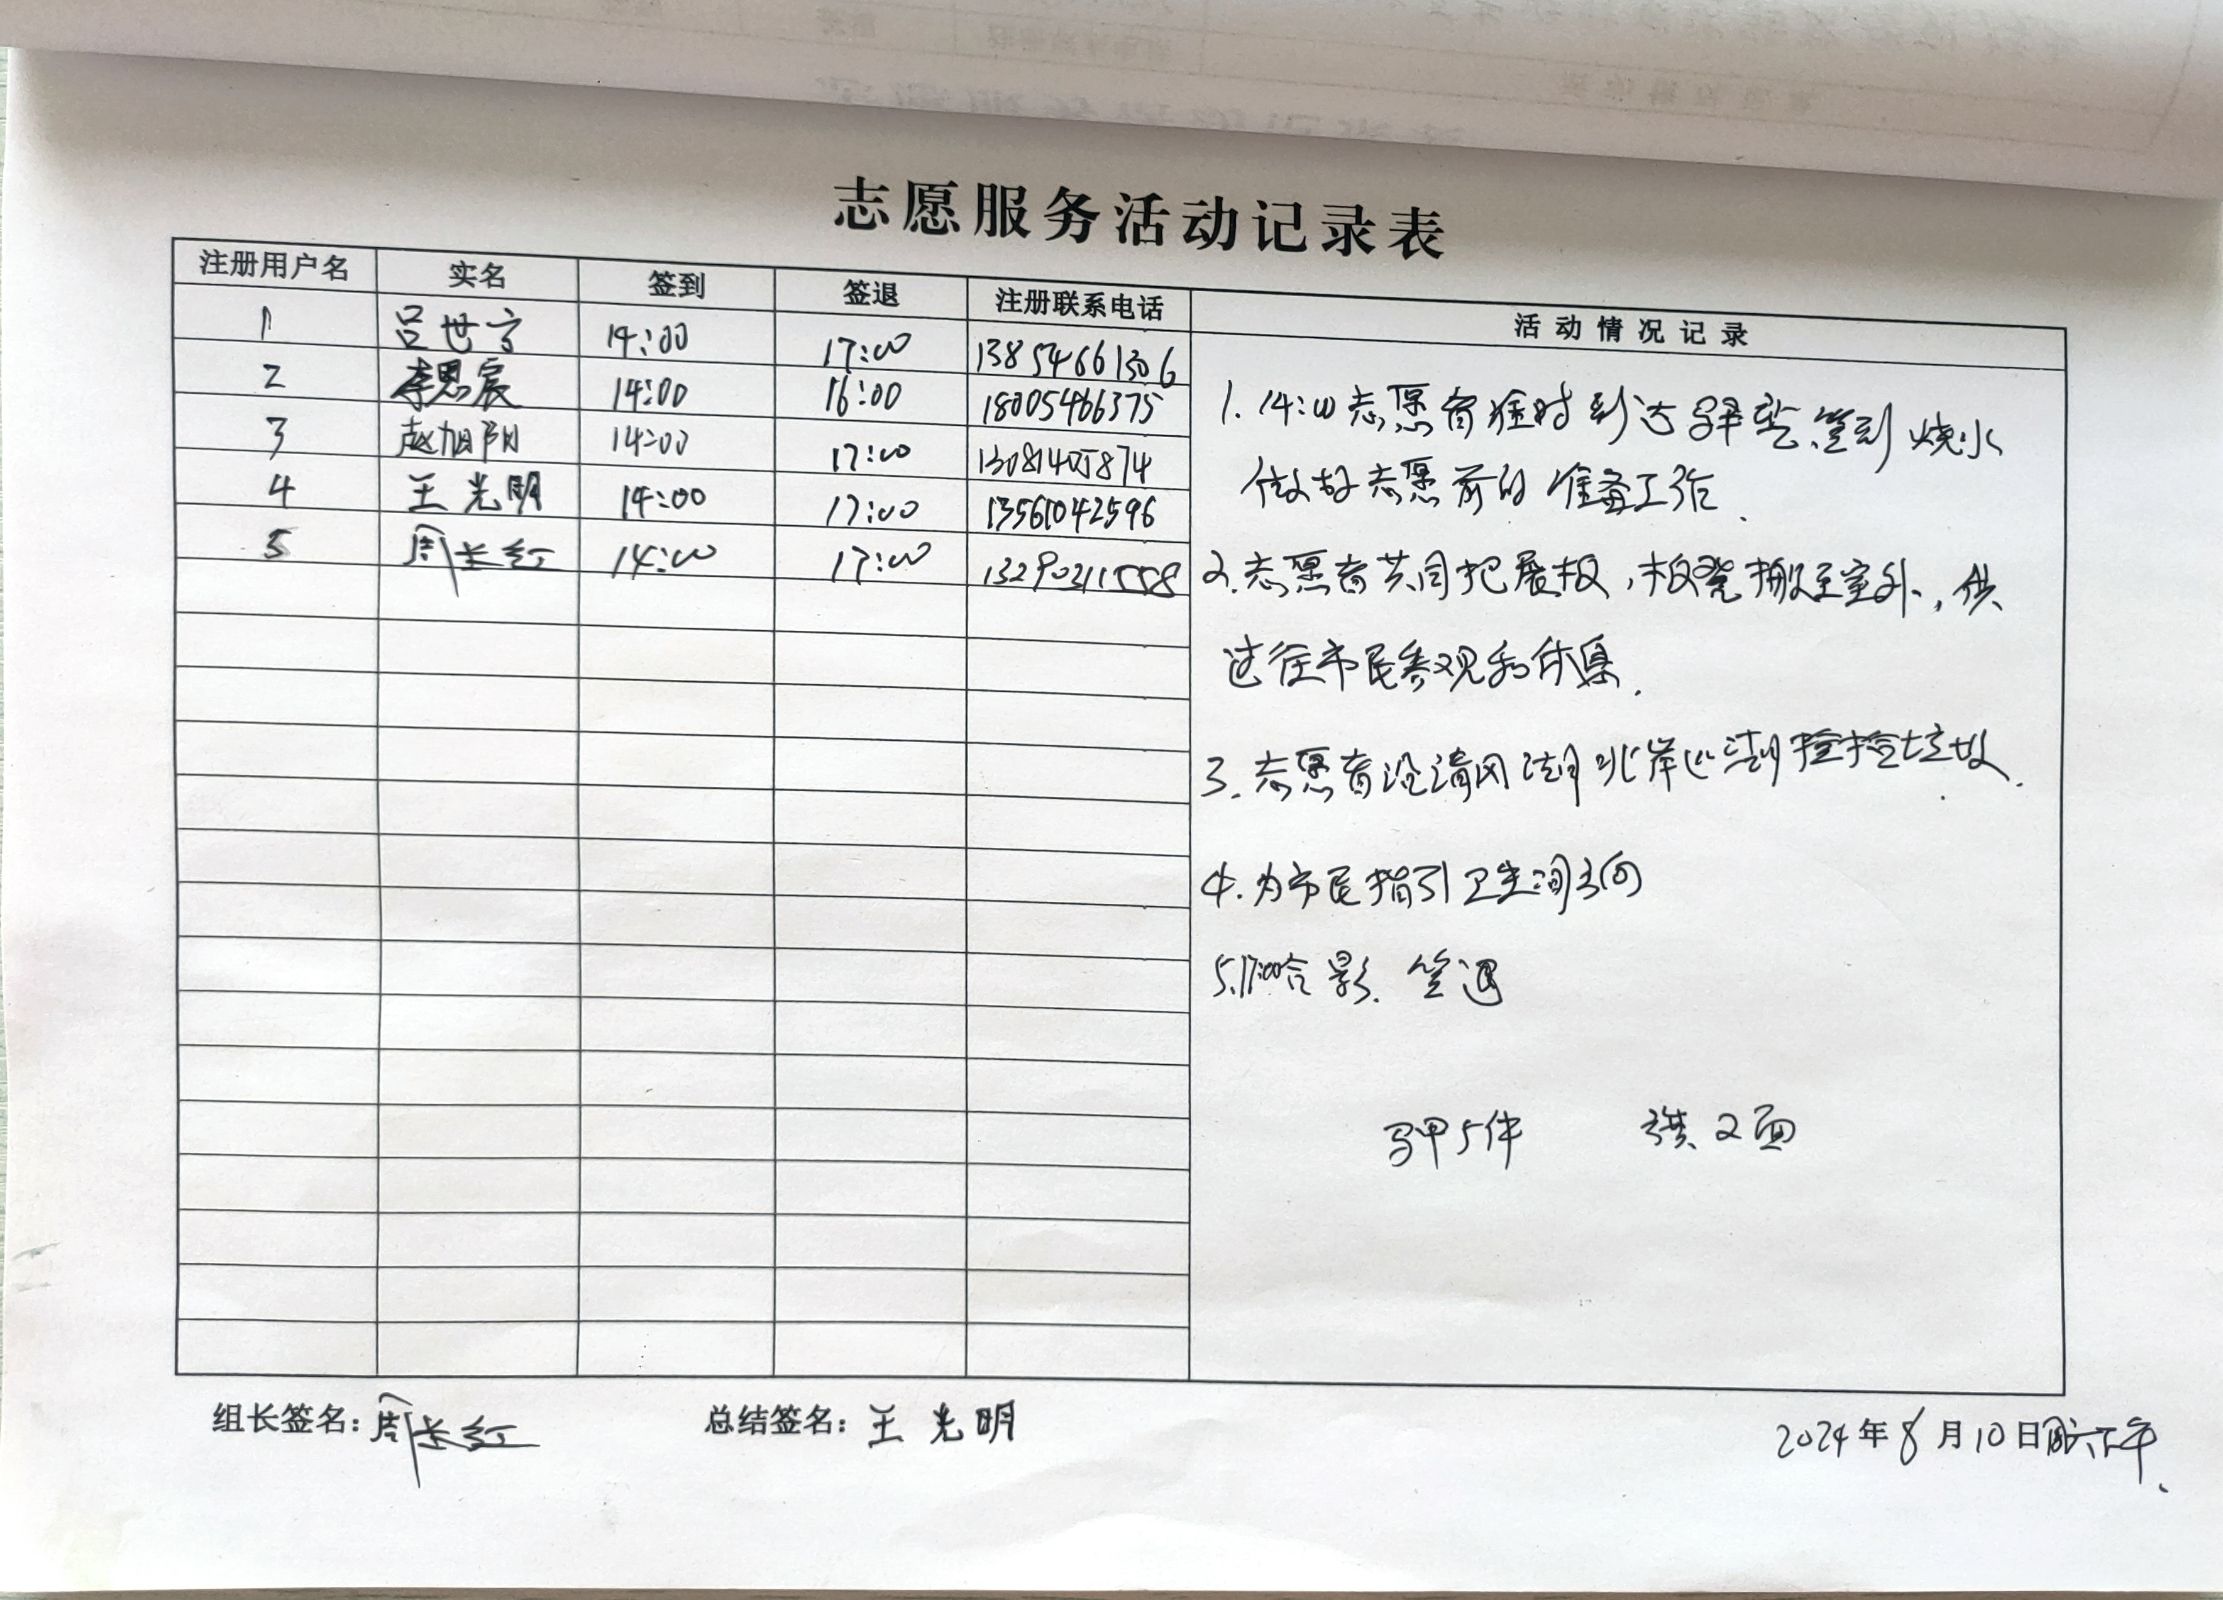 志愿服务活动记录表
注册用户名 实名 签到 签退 注册联系电话 活动情况记录
1 吕世方 14:00 17:00 13854661306
2 李思宸 14:00 16:00 18005466375
3 赵旭阳 14:00 17:00 13081405874
4 王光明 14:00 17:00 13561042596
5 周长红 14:00 17:00 13290211558
1. 14:00志愿者准时到达驿站签到烧水
做好志愿前的准备工作.
2.志愿者共同把展板,板凳搬至室外,供
过往市民参观和休息.
3.志愿者沿清风湖北岸巡湖捡捡垃圾.
4.为市民指引卫生间方向
5.17:00合影.签退
马甲5件 旗2面
组长签名:周长红 总结签名:王光明 2024年8月10日周六下午.